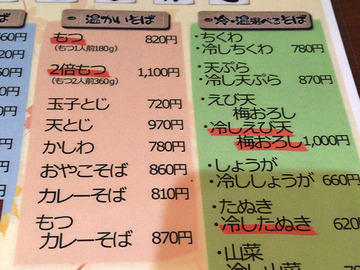 ば
温かいそば
冷・温選べるそば
60円
もつ 820円
(もつ1人前180g)
2倍もつ 1,100円
(もつ2人前360g)
玉子とじ 720円
天とじ 970円
かしわ 780円
おやこそば 860円
カレーそば 810円
もつ
カレーそば 870円
・ちくわ
・冷しちくわ 780円
・天ぷら
・冷し天ぷら 870円
・えび天
梅おろし
・冷しえび天
梅おろし 1,000円
・しょうが
・冷ししょうが 660円
・たぬき
・冷したぬき 620
・山菜